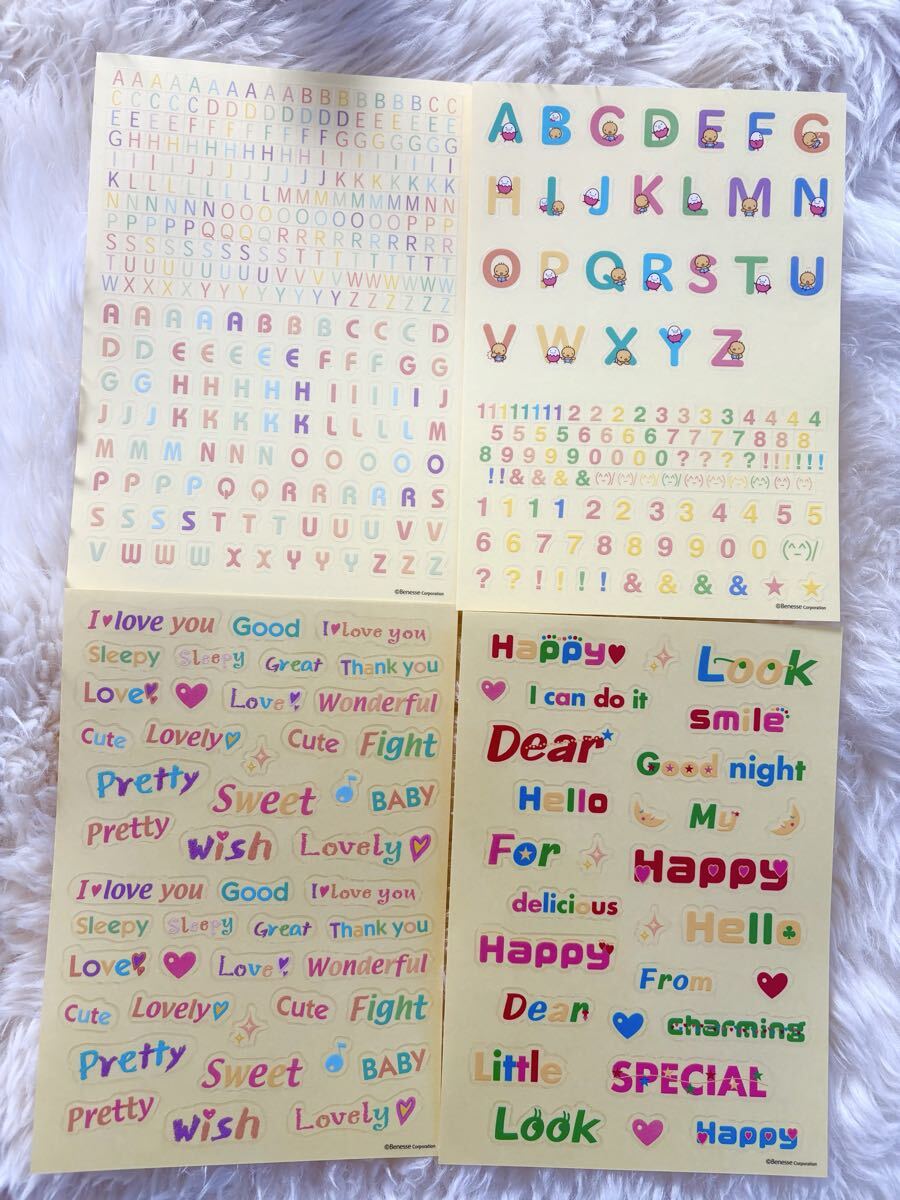 A A A A A A A A A B B B B B B B C C
C C C C C D D D D D D D D E E E E E
E E E E F F F F F F F F G G G G G G
G H H H H H H H H H I I I I I I I I
I I I I I J J J J J J J K K K K K K
K L L L L L L L L M M M M M M M N N
N N N N N N O O O O O O O O O P P P
P P P P P Q Q Q Q R R R R R R R R R
S S S S S S S S S T T T T T T T T T
T U U U U U U U U V V V V W W W W W
W X X X X Y Y Y Y Y Y Y Y Z Z Z Z Z
A A A A A B B B C C C D
D D E E E E E F F F G G
G G H H H H H I I I I J
J J J K K K K K L L L L M
M M M M N N N O O O O O O
P P P P Q Q R R R R R S
S S S S T T T U U U V V
V W W W X X Y Y Y Z Z Z
©Benesse Corporation
A B C D E F G
H I J K L M N
O P Q R S T U
V W X Y Z
1 1 1 1 1 1 1 1 2 2 2 2 3 3 3 3 4 4 4 4
5 5 5 5 6 6 6 6 7 7 7 7 8 8 8
8 9 9 9 9 0 0 0 0 ? ? ? ? ! ! ! ! ! !
! ! & & & & (^^)/ (^^)/ (^^)/ (^^)/ (^^)/ (^^)/ (^^)/ (^^)/ (^^)/ (^^)/
1 1 1 1 2 2 3 3 4 4 5 5
6 6 7 7 8 8 9 9 0 0 (^^)/
? ? ! ! ! ! & & & & ★ ★
©Benesse Corporation
I♥love you Good I♥love you
Sleepy Sleepy Great Thank you
Love Love Wonderful
Cute Lovely Cute Fight
Pretty Sweet BABY
Pretty Wish Lovely
I♥love you Good I♥love you
Sleepy Sleepy Great Thank you
Love Love Wonderful
Cute Lovely Cute Fight
Pretty Sweet BABY
Pretty Wish Lovely
©Benesse Corporation
Happy Look
I can do it smile
Dear Good night
Hello My
For Happy
delicious Hello
Happy From
Dear charming
Little SPECIAL
Look Happy
©Benesse Corporation